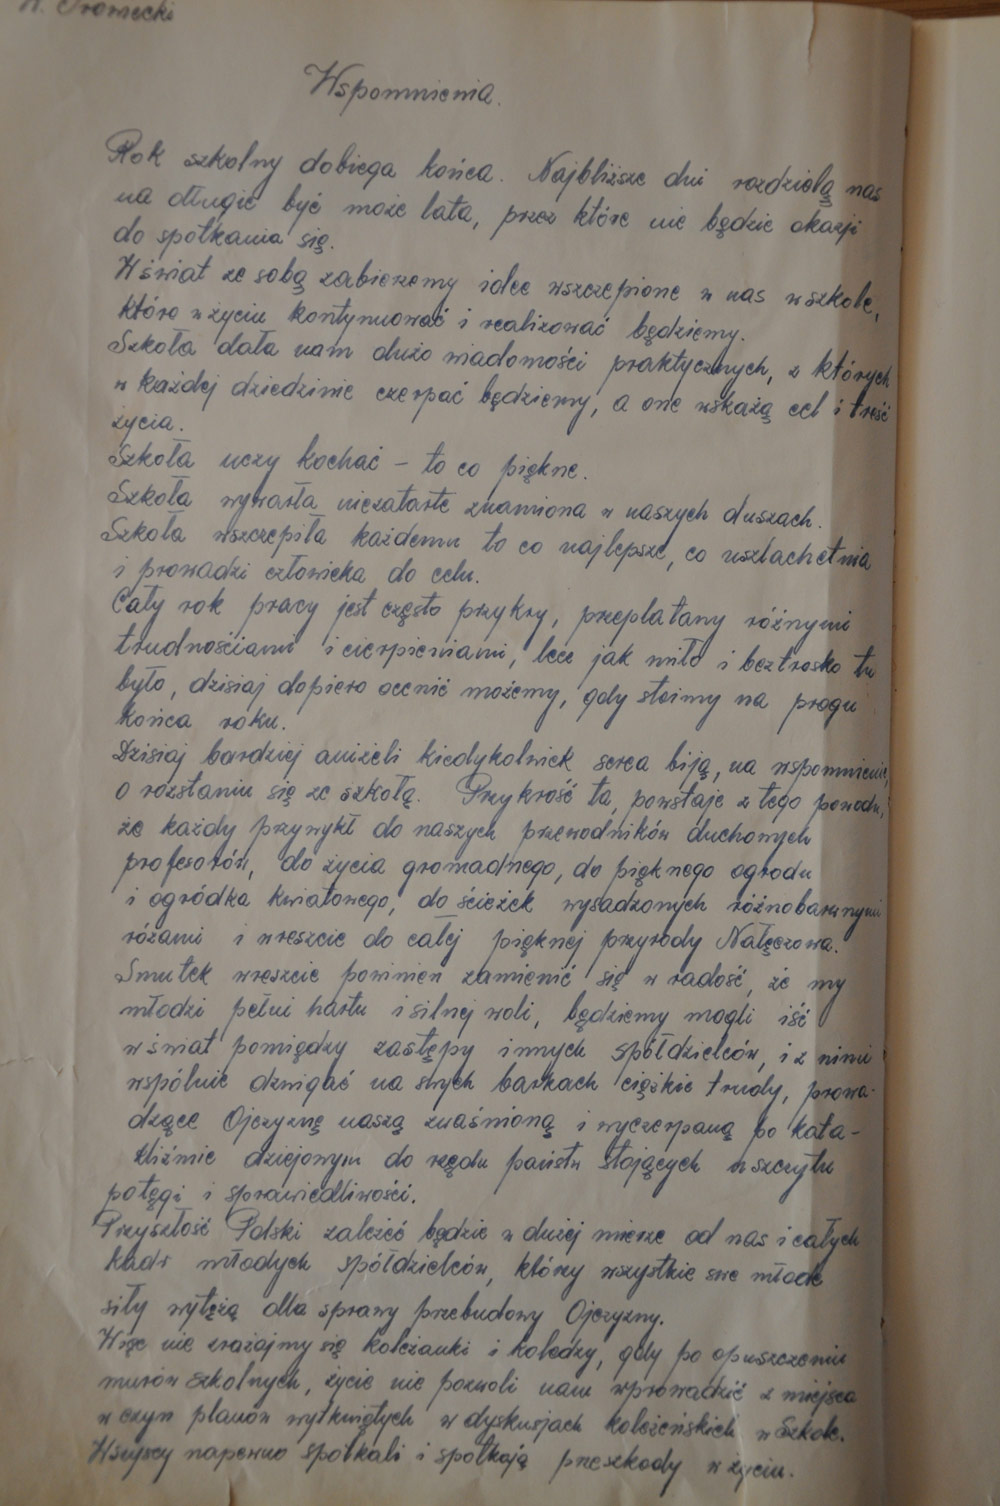 Wspomnienia.
Rok szkolny dobiega końca. Najbliższe dni rozdzielą nas
na długie być może lata, przez które nie będzie okazji
do spotkania się.
W świat ze sobą zabierzemy idee wszczepione w nas w szkole,
które w życiu kontynuować i realizować będziemy.
Szkoła dała nam dużo wiadomości praktycznych, z których
w każdej dziedzinie czerpać będziemy, a one wskażą cel i treść
życia.
Szkoła uczy kochać – to co piękne.
Szkoła wywarła niezatarte znamiona w naszych duszach.
Szkoła wszczepiła każdemu to co najlepsze, co uszlachetnia
i prowadzi człowieka do celu.
Cały rok pracy jest często przykry, przeplatany różnymi
trudnościami i cierpieniami, lecz jak miło i beztrosko tu
było, dzisiaj dopiero ocenić możemy, gdy stoimy na progu
końca roku.
Dzisiaj bardziej aniżeli kiedykolwiek serca biją, na wspomnienie,
o rozstaniu się ze szkołą. Przykrość ta, powstaje z tego powodu,
że każdy przywykł do naszych przewodników duchowych
profesorów, do życia gromadnego, do pięknego ogrodu
i ogródka kwiatowego, do ścieżek wysadzonych różnobarwnymi
różami i wreszcie do całej pięknej przyrody Nałęczowa.
Smutek wreszcie powinien zamienić się w radość, że my
młodzi pełni hartu i silnej woli, będziemy mogli iść
w świat pomiędzy zastępy innych spółdzielców, i z nimi
wspólnie dźwigać na swych barkach ciężkie trudy, prowa-
dzące Ojczyznę naszą zwaśnioną i wyczerpaną po kata-
kliźmie dziejowym do rzędu państw stojących u szczytu
potęgi i sprawiedliwości.
Przyszłość Polski zależeć będzie w dużej mierze od nas i całych
kadr młodych spółdzielców, którzy wszystkie swe młode
siły wytężą dla sprawy przebudowy Ojczyzny.
Więc nie zrażajmy się koleżanki i koledzy, gdy po opuszczeniu
murów szkolnych, życie nie pozwoli nam wprowadzić z miejsca
w czyn planów wytkniętych w dyskusjach koleżeńskich w Szkole.
Wszyscy napewno spotkali i spotkają przeszkody w życiu.